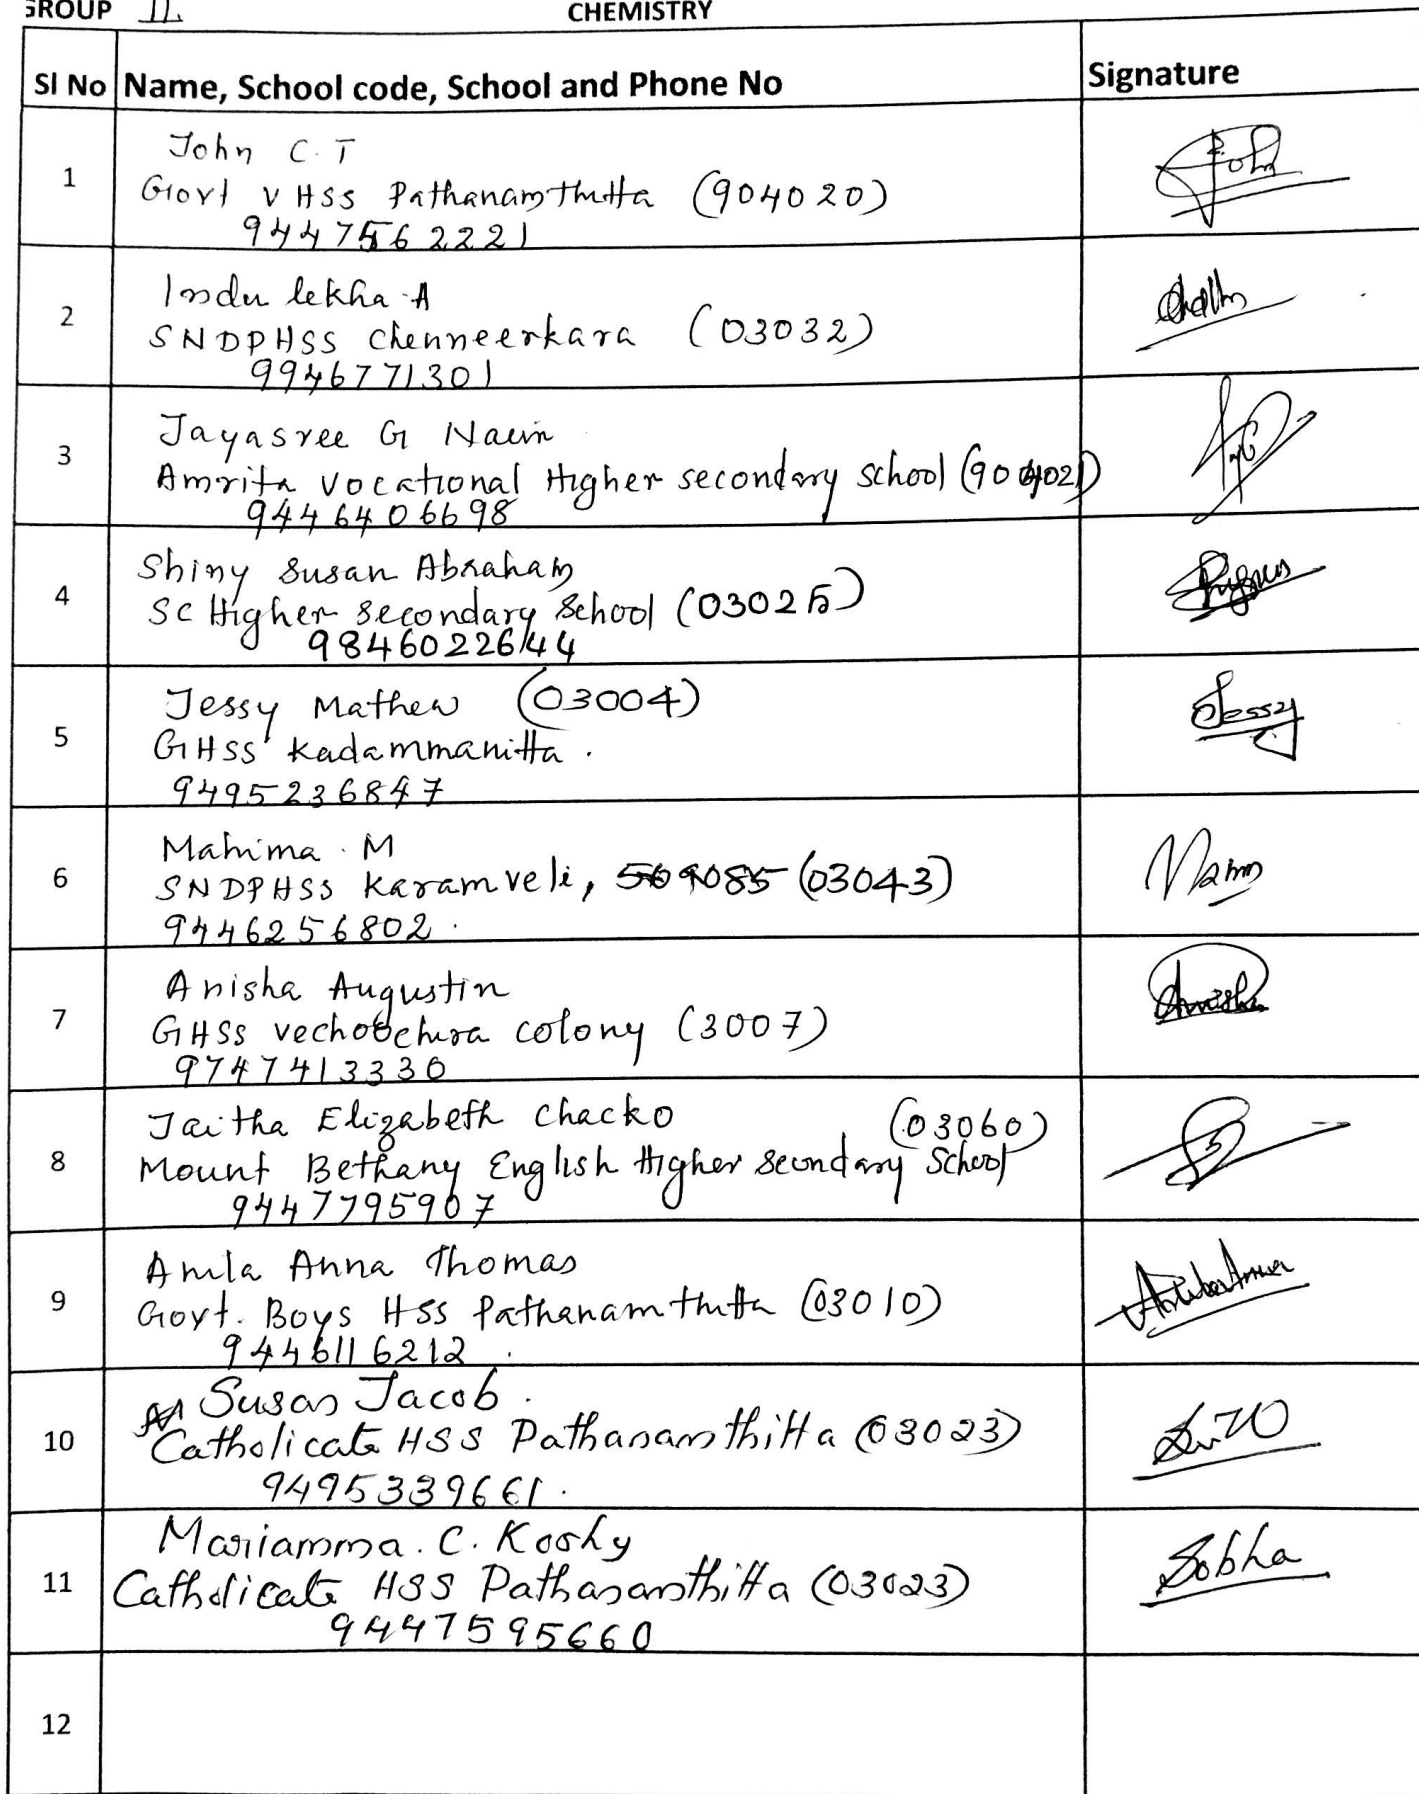 GROUP II. CHEMISTRY
Sl No Name, School code, School and Phone No Signature
1 John C.T
Govt V HSS Pathanamthitta (904020)
9447562221
2 Indu lekha A
SNDPHSS Chenneerkara (03032)
9946771301
3 Jayasree G Nair
Amrita Vocational Higher secondary school (904021)
9446406698
4 Shiny Susan Abraham
SC Higher Secondary School (03025)
9846022644
5 Jessy Mathew (03004) Jessy
GHSS Kadammanitta.
9495236847
6 Mahima. M
SNDPHSS Karamveli, (03043)
9446256802.
7 Anisha Augustin
GHSS vechoochira colony (3007)
9747413330
8 Jaitha Elizabeth Chacko (03060)
Mount Bethany English Higher Secondary School
9447795907
9 Anila Anna Thomas
Govt. Boys HSS Pathanamthitta (03010)
9446116212.
10 Susan Jacob.
Catholicate HSS Pathanamthitta (03023)
9495339661.
11 Mariamma. C. Koshy Sobha
Catholicate HSS Pathanamthitta (03023)
9447595660
12